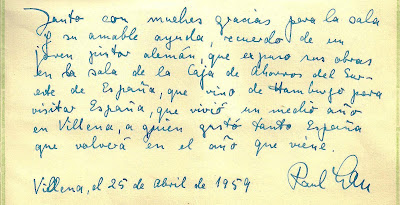 Junto con muchas gracias para la sala
y su amable ayuda, recuerdo de un
joven pintor alemán, que expuso sus obras
en la sala de la Caja de Ahorros del Sur-
este de España, que vino de Hamburgo para
visitar España, que vivió un medio año
en Villena, a quien gustó tanto España
que volverá en el año que viene.
Villena, el 25 de Abril de 1959 Paul